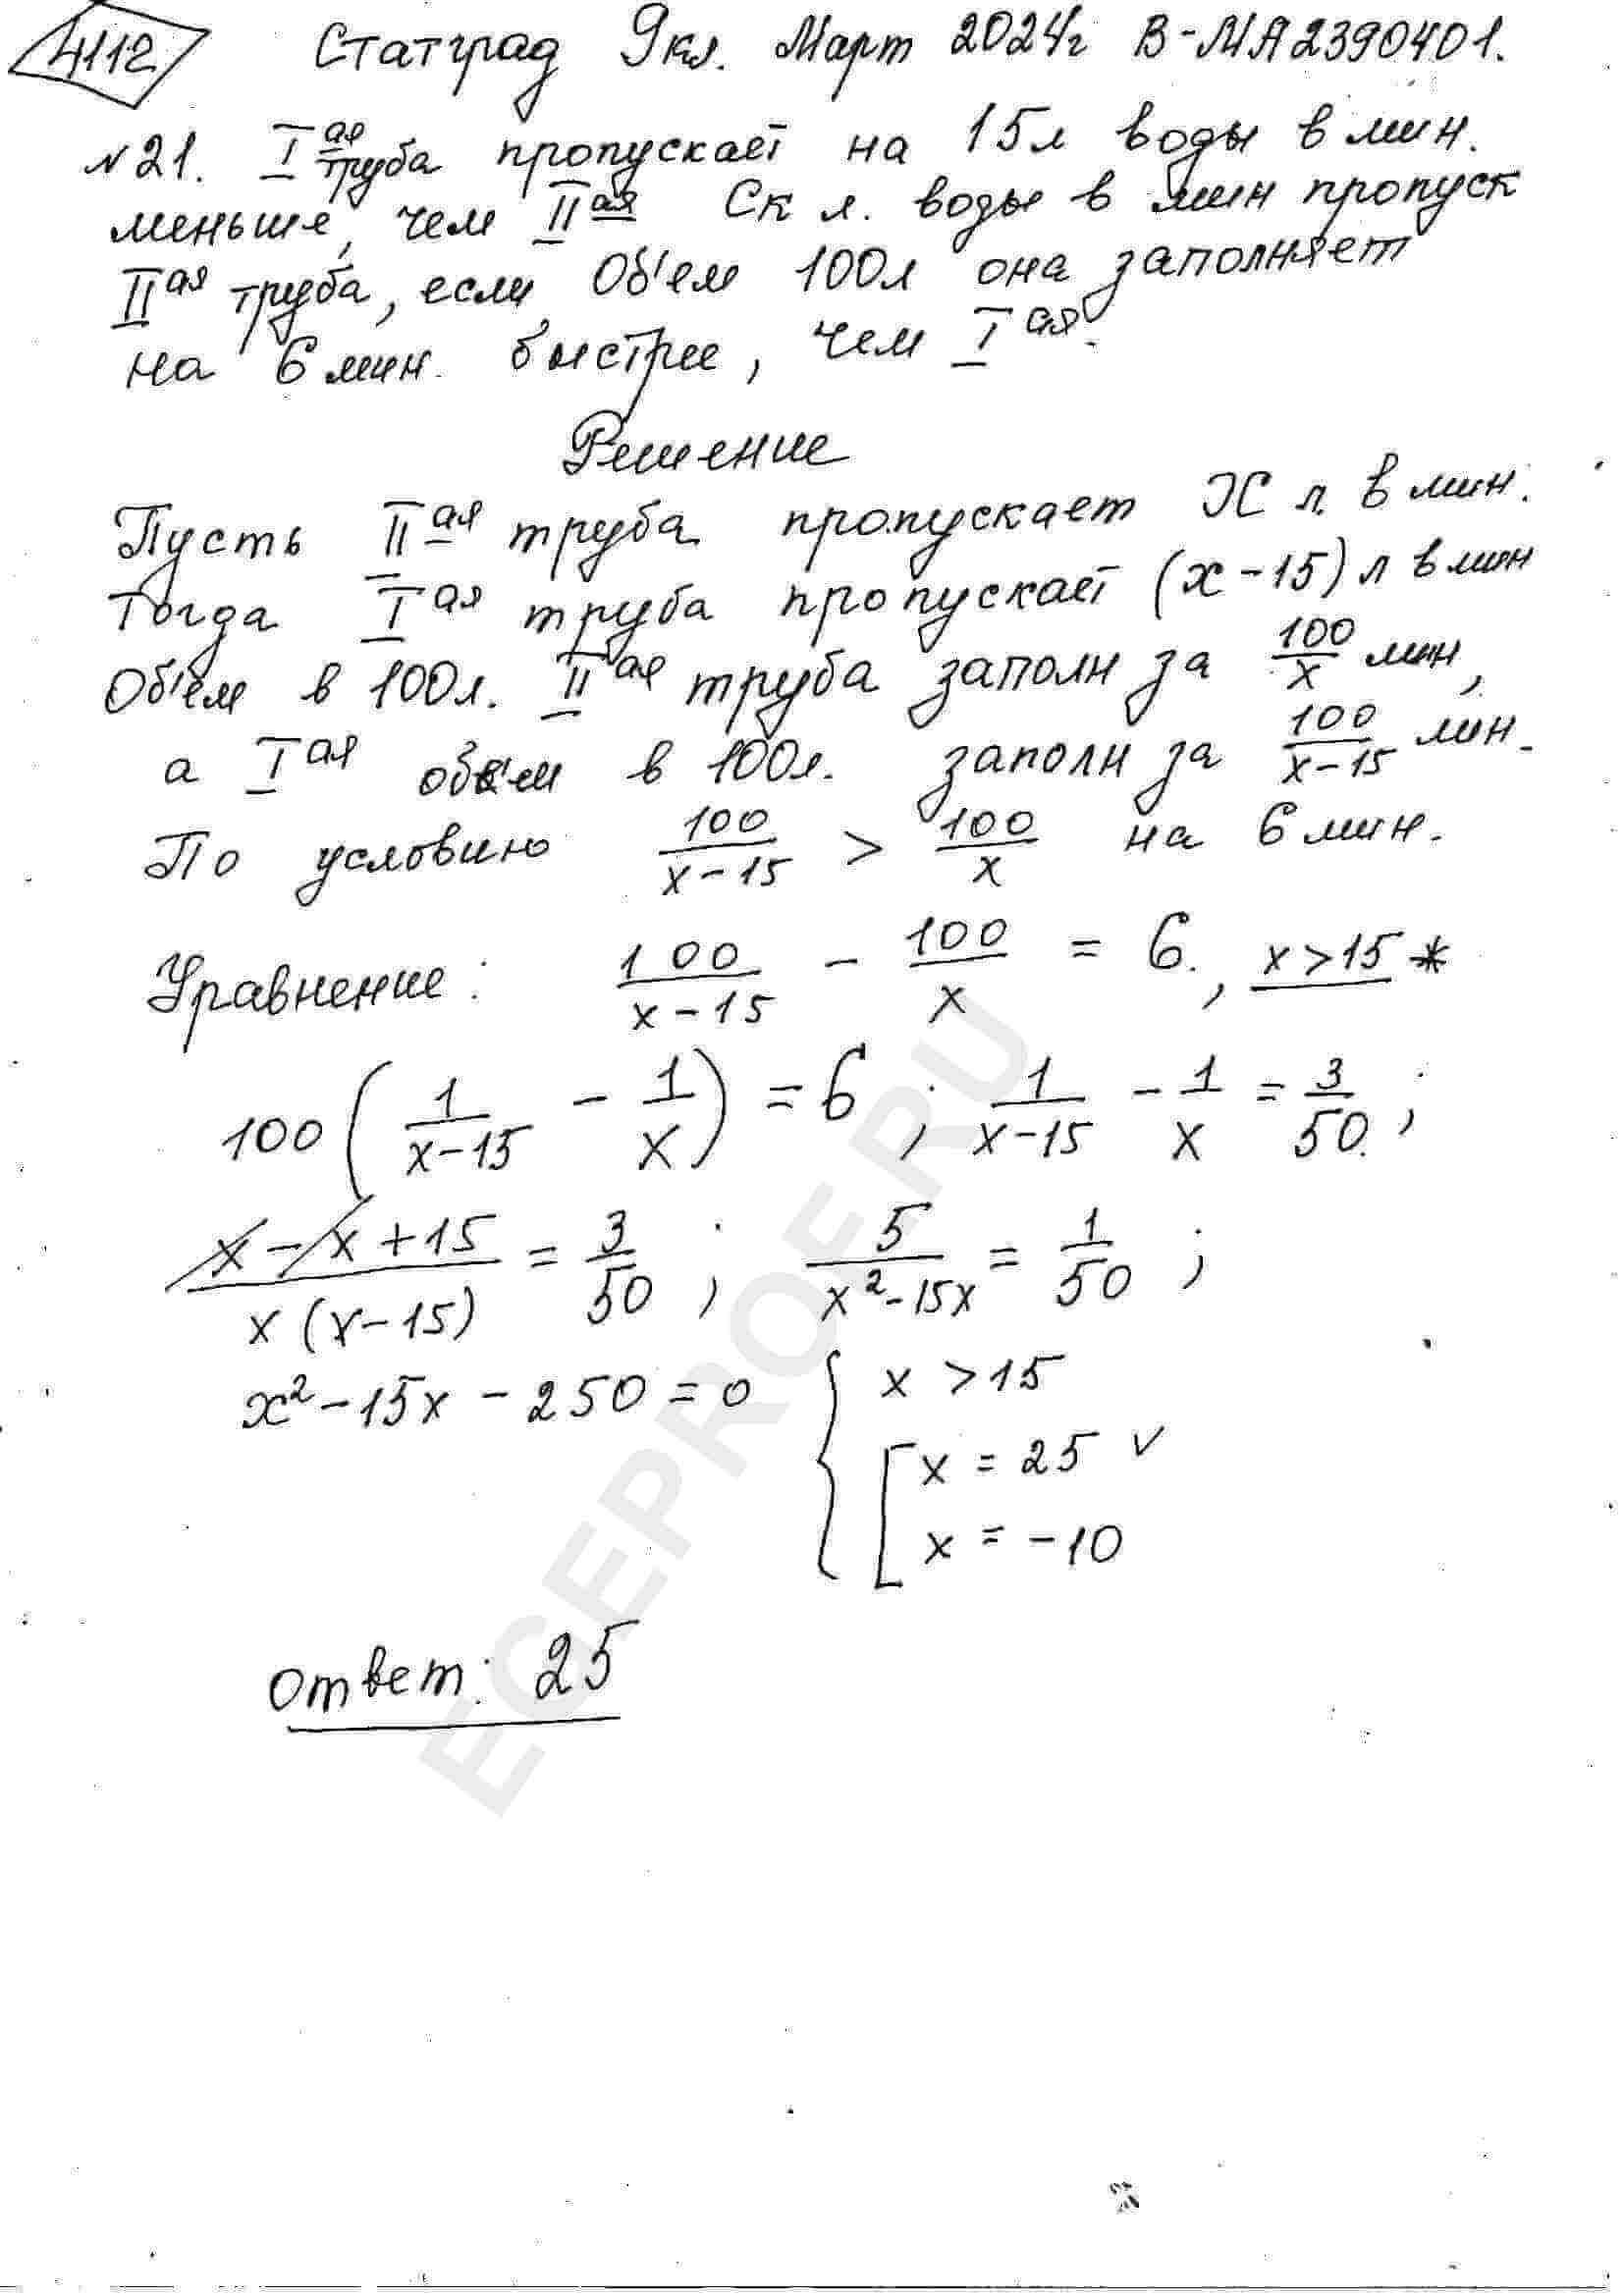 4112 Статград 9кл. Март 2024г В-МА2390401.
№21. I ая труба пропускает на 15л воды в мин.
меньше, чем II ая Ск л. воды в мин пропуск
II ая труба, если Об'ем 100л она заполняет
на 6 мин. быстрее, чем I ая.
Решение
Пусть II ая труба пропускает X л. в мин.
Тогда I ая труба пропускает (x-15) л в мин
Об'ем в 100л. II ая труба заполн за 100/x мин,
а I ая об'ем в 100л. заполн за 100/x-15 мин.
По условию 100/x-15 > 100/x на 6 мин.
Уравнение: 100/x-15 - 100/x = 6., x>15 *
100(1/x-15 - 1/x) = 6 ; 1/x-15 - 1/x = 3/50. ;
x-x+15/x(x-15) = 3/50 ; 5/x²-15x = 1/50 ;
x²-15x-250=0 { x>15
[ x = 25 v
x = -10
Ответ: 25
EGEPROF.RU